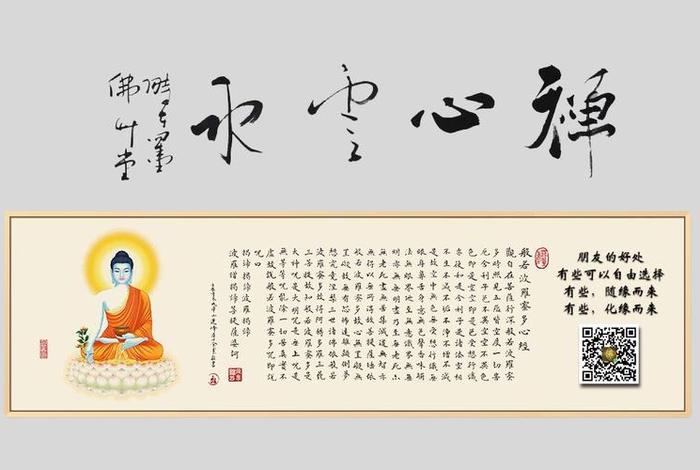 禪心雲水
佛艸堂
般若波羅蜜多心經
觀自在菩薩行深般若波羅蜜
多時照見五蘊皆空度一切苦
厄舍利子色不異空空不異色
色即是空空即是色受想行識
亦復如是舍利子是諸法空相
不生不滅不垢不淨不增不減
是故空中無色無受想行識無
眼耳鼻舌身意無色聲香味觸
法無眼界乃至無意識界無無
明亦無無明盡乃至無老死亦
無老死盡無苦集滅道無智亦
無得以無所得故菩提薩埵依
般若波羅蜜多故心無罣礙無
罣礙故無有恐怖遠離顛倒夢
想究竟涅槃三世諸佛依般若
波羅蜜多故得阿耨多羅三藐
三菩提故知般若波羅蜜多是
大神咒是大明咒是無上咒是
無等等咒能除一切苦真實不
虛故說般若波羅蜜多咒即說
咒曰
揭諦揭諦波羅揭諦
波羅僧揭諦菩提薩婆訶
朋友的好处
有些可以自由选择
有些，随缘而来
有些，化缘而来